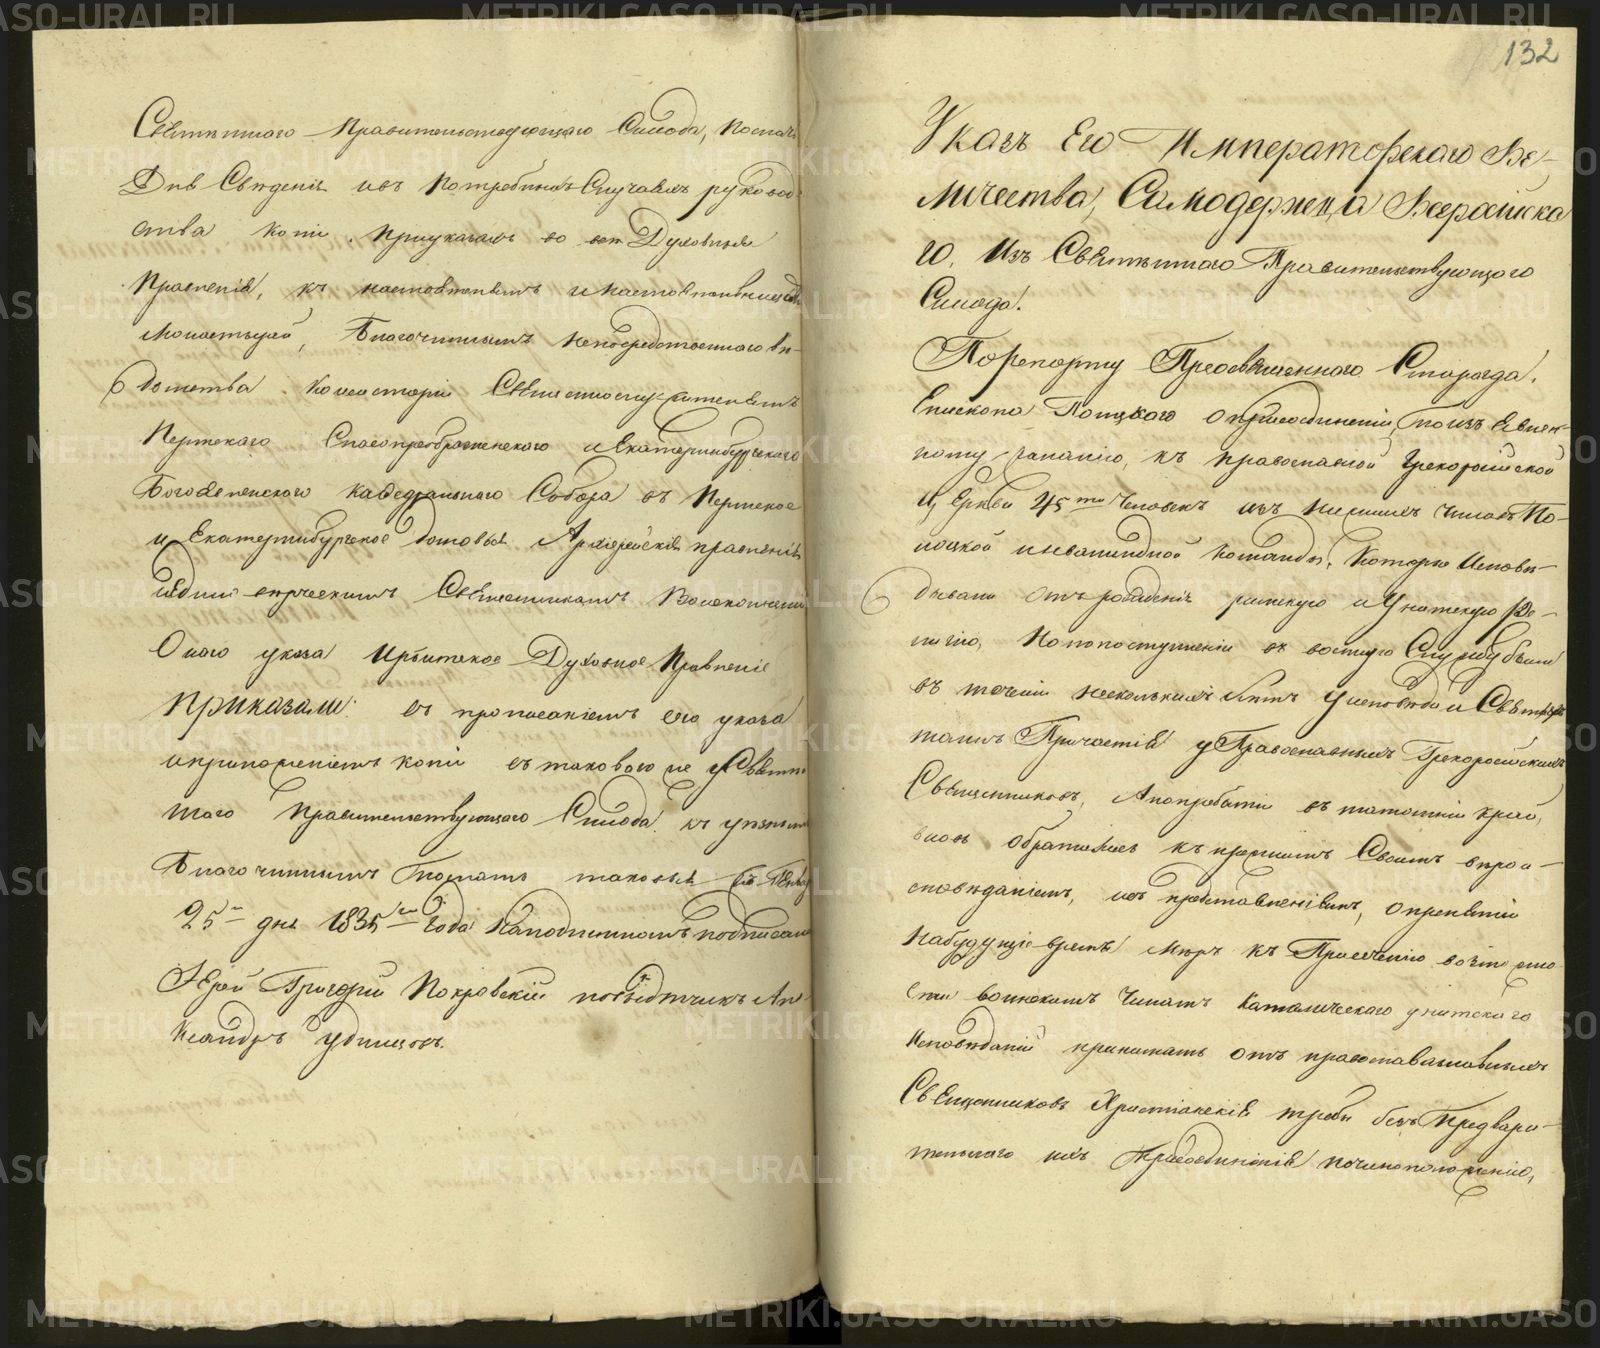 Святѣйшаго Правительствующаго Синода, послать
Для Свѣденія и въ потребныхъ Случаяхъ руковод-
ства копіи при указахъ во всѣ Духовныя
Правленія, къ настоятелямъ и настоятельницамъ
монастырей, Благочиннымъ непосредственного вѣ-
домства Консисторіи Священнослужителямъ
Пермскаго Спасопреображенскаго и Екатеринбургскаго
Богоявленского кафедральнаго Собора въ Пермское
и Екатеринбургское домовыя Архіерейскія правленія
единовѣрческимъ Священникамъ Во исполненіи
Онаго указа Ирбитское Духовное Правленіе
Приказали: съ прописаніемъ его указа
и приложеніемъ копіи съ таковаго же Святѣй-
шаго Правительствующаго Синода къ
Благочиннымъ Послать таковыя
25 дня 1835 года На подлинномъ подписали
Іерей Григорій Покровскій повытчикъ Але-
ксандръ Удинцовъ.
132
Указъ Его Императорскаго Ве-
личества, Самодержца Всероссійска
го. Изъ Святѣйшаго Правительствующаго
Синода.
По Репорту Преосвященного Смарагда,
Епископа Полоцкого о присоединеніи по изъ явлен-
ному желанію, къ православной Грекороссійской
Церкви 45 ти человекъ изъ нижнихъ чиновъ По-
лоцкой инвалидной команды, Которые Исповѣ-
дывали отъ рожденія римскую и Унитскую Ре-
лигію, Но по поступленіи въ военную Службу были
въ теченіи несколькихъ лѣтъ у исповѣди и Святыхъ
таинъ Причастія у Православныхъ Грекороссійскихъ
Священниковъ, А по прибытіи въ тамошній край,
вновь обратились къ прежнимъ Своимъ вѣрои-
сповѣданіямъ, и съ представленіемъ, о принятіи
На будущіе время мѣръ къ Пресеченію возможно
сти воинскимъ Чинамъ Католическаго унитскаго
Исповѣданій принимать отъ православныхъ
Священниковъ Христіанскія требы безъ Предвари-
тельнаго ихъ присоединенія по чиноположенію,